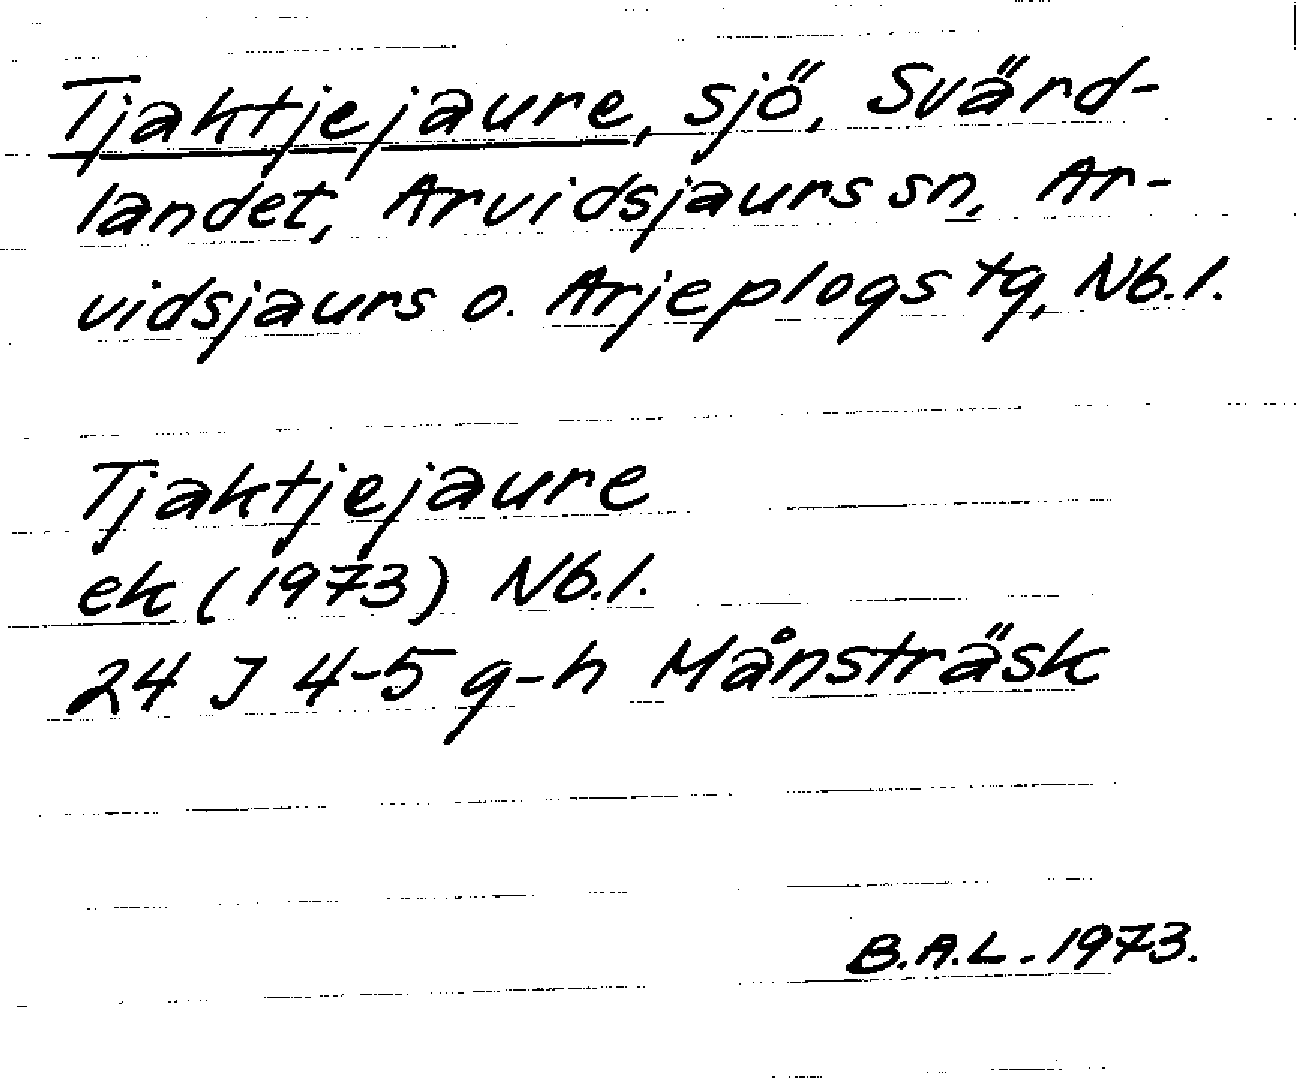 Tjaktjejaure, sjö, Svärd-
landet, Arvidsjaurs sn, Ar-
vidsjaurs o. Arjeplogs tg, Nb.l.
Tjaktjejaure
ek (1973) Nb.l.
24 J 4-5 g-h Månsträsk
B.A.L. 1973.